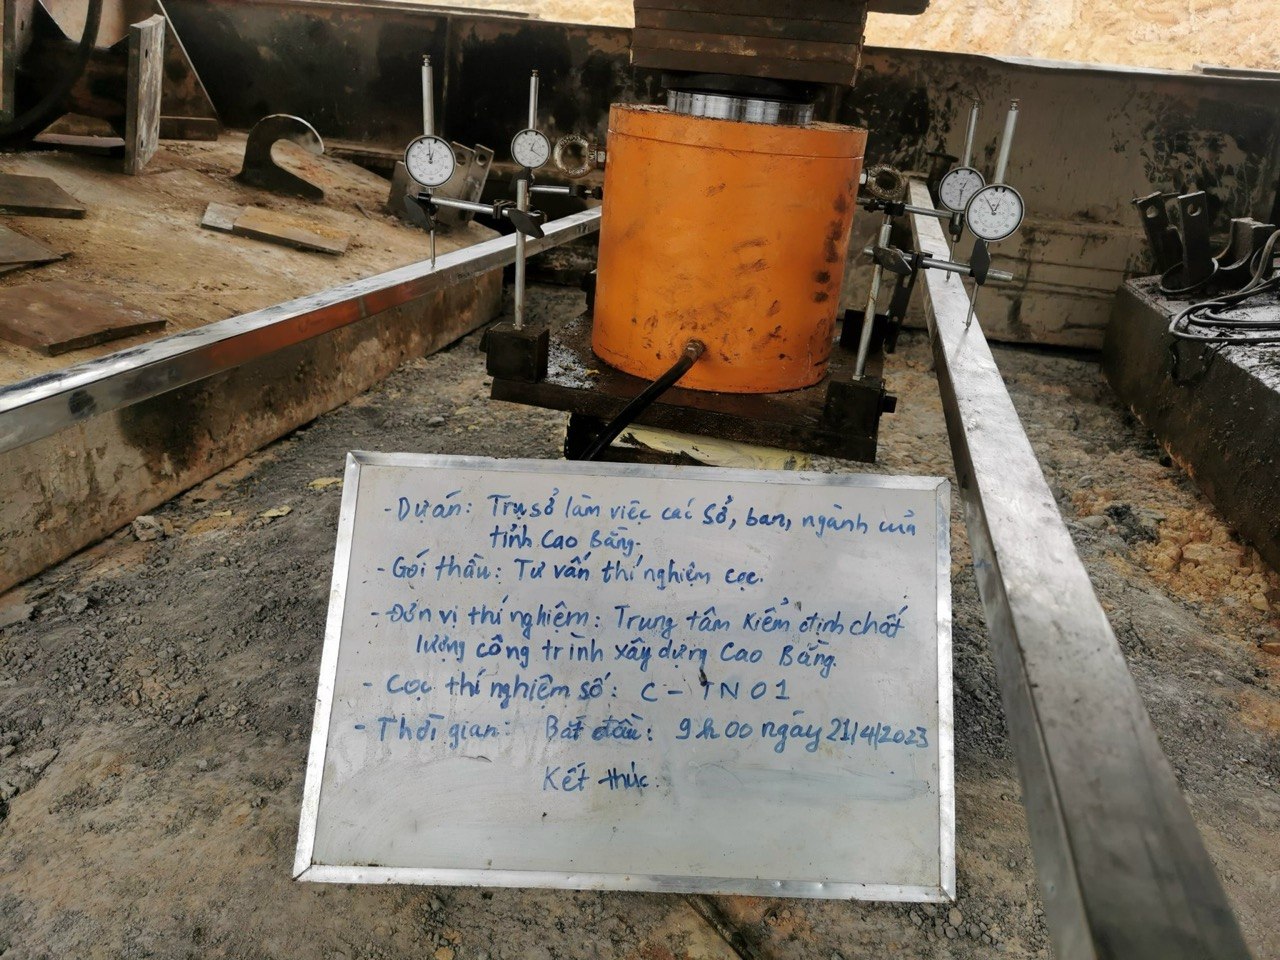 - Dự án: Trụ sở làm việc các Sở, ban, ngành của
tỉnh Cao Bằng.
- Gói thầu: Tư vấn thí nghiệm cọc.
- Đơn vị thí nghiệm: Trung tâm Kiểm định chất
lượng công trình xây dựng Cao Bằng.
- Cọc thí nghiệm số: C - TN01
- Thời gian: Bắt đầu: 9h00 ngày 21/4/2023
Kết thúc: